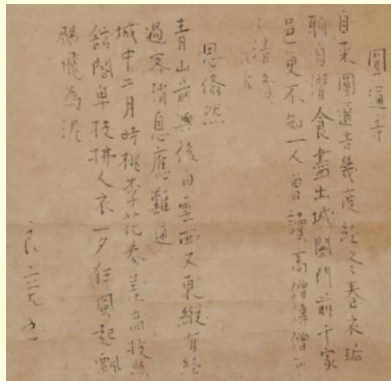 圓通寺
自来圓通寺幾度経冬春衣垢
聊自濯食盡出城闉門前千家
邑更不知一人曽讀高僧傳僧可
々清
思翛然
青山前與後白雲西又東縦有経
過客消息應難通
城中二月時桃李花参差高枝照
舘閣卑枝拂人衣一夕狂風起飄
飛為泥